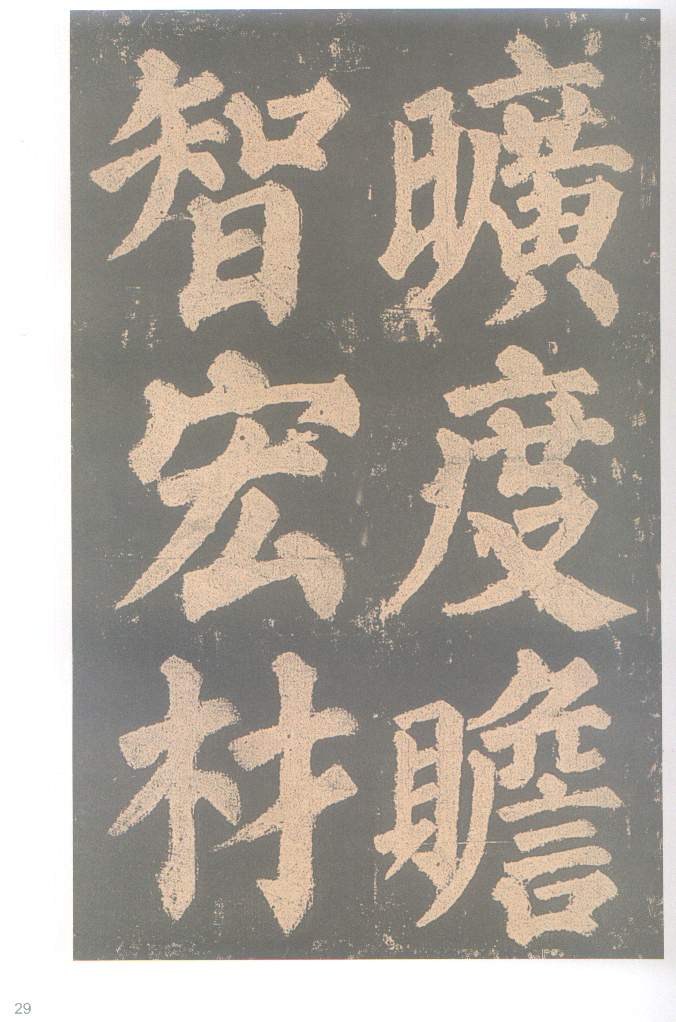 曠度瞻
智宏材
29